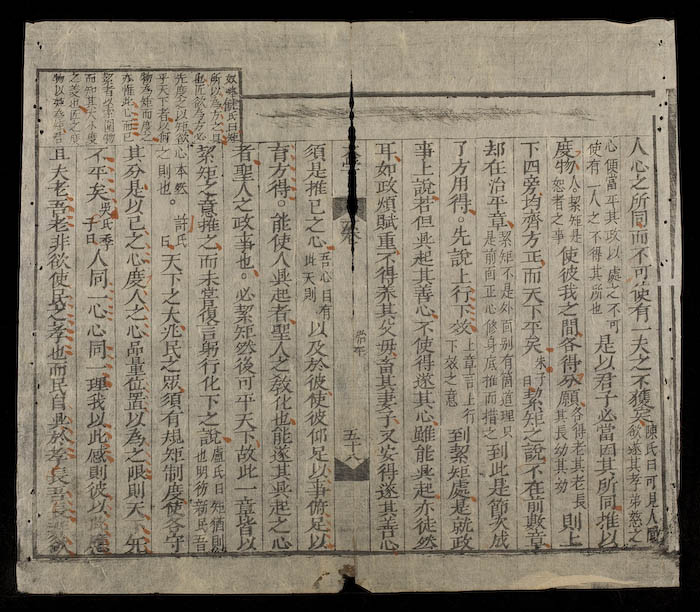 人心之所同而不可使有一夫之不獲矣陳氏曰可見人
心便當平其政以處之不可
使有一人之不得其所也
欲遂其孝弟慈之
是以君子必當因其所同推以
度物
人絜矩是
恕者之事
使彼我之間各得分願
各得老其老長
其長幼其幼
則上
下四旁均齊方正而天下平矣
朱子
曰
絜矩之說不在前數章
却在治平章
絜矩不是外面別有箇道理只
是前面正心修身底推而措之
到此是節次成
了方用得。先說上行下效
上章言上行
下效之意
到絜矩處是就政
事上說若但興起其善心不使得遂其心雖能興起亦徒然
耳如政煩賦重不得養其父母畜其妻子又安得遂其善心
五十八
須是推己之心
以及於彼使彼仰足以事俯足以
育方得。能使人興起者聖人之敎化也能遂其興起之心
者聖人之政事也。必絜矩然後可平天下故此一章皆以
絜矩之意推之而未嘗復言躬行化下之說
盧氏曰
矩猶則
也明
新民
之則也。
許氏
曰
天下之大兆民之衆須有規矩制度使各守
其分是以己之心度人之心品量位置以為之限則天下
不平矣
吳氏季
子曰
人同一心心同一理我以此感則彼以
且夫老吾老非欲使民之孝也而民自興於孝長吾